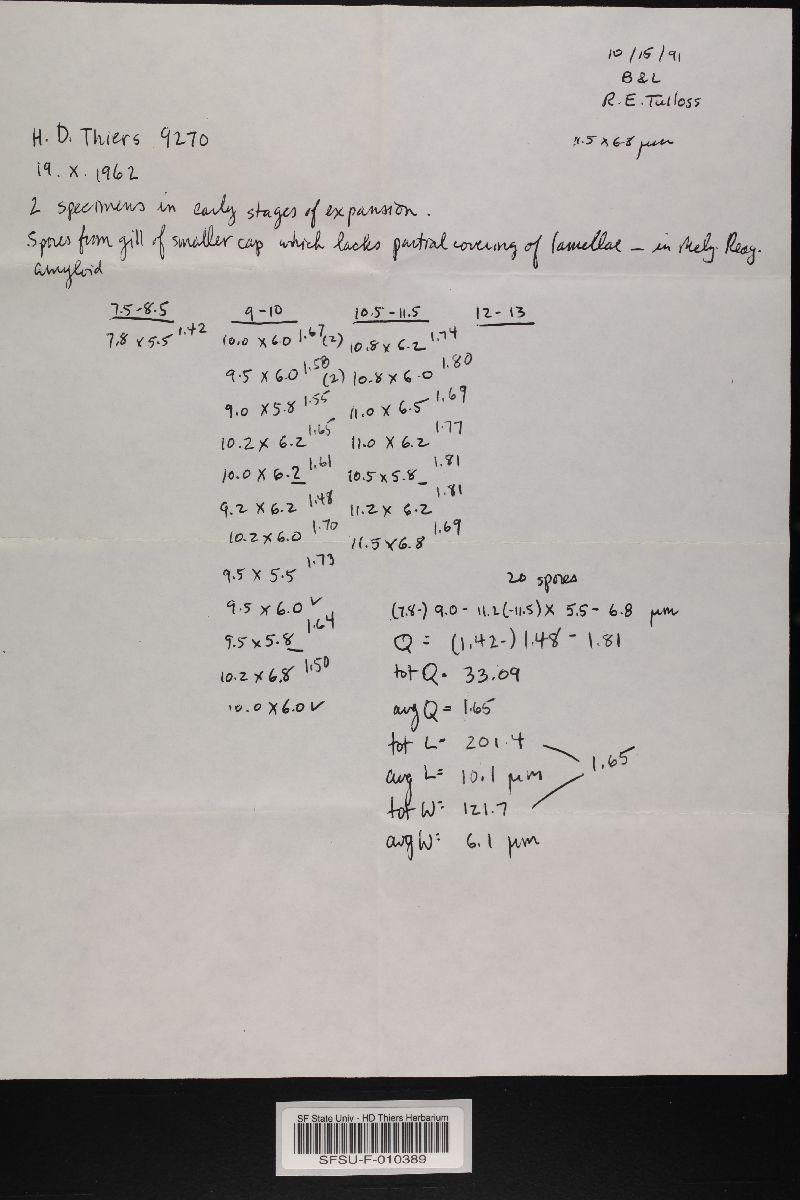 10/15/91
B&L
R.E. Tulloss
11.5 x 6.8 µm
H. D. Thiers 9270
19. X. 1962
2 specimens in early stages of expansion.
Spores from gill of smaller cap which lacks partial covering of lamellae – in Melz. Reag.
amyloid
7.5-8.5 9-10 10.5-11.5 12-13
7.8 x 5.5 1.42 10.0 x 6.0 1.67 (2) 10.8 x 6.2 1.74
9.5 x 6.0 1.58 (2) 10.8 x 6.0 1.80
9.0 x 5.8 1.55 11.0 x 6.5 1.69
10.2 x 6.2 1.65 11.0 x 6.2 1.77
10.0 x 6.2 1.61 10.5 x 5.8 1.81
9.2 x 6.2 1.48 11.2 x 6.2 1.81
10.2 x 6.0 1.70 11.5 x 6.8 1.69
9.5 x 5.5 1.73
9.5 x 6.0 ✓
9.5 x 5.8 1.64
10.2 x 6.8 1.50
10.0 x 6.0 ✓
20 spores
(7.8-) 9.0 - 11.2 (-11.5) x 5.5 - 6.8 µm
Q = (1.42-) 1.48 - 1.81
tot Q = 33.09
avg Q = 1.65
tot L = 201.4
avg L = 10.1 µm 1.65
tot W = 121.7
avg W = 6.1 µm
SF State Univ - HD Thiers Herbarium
SFSU-F-010389